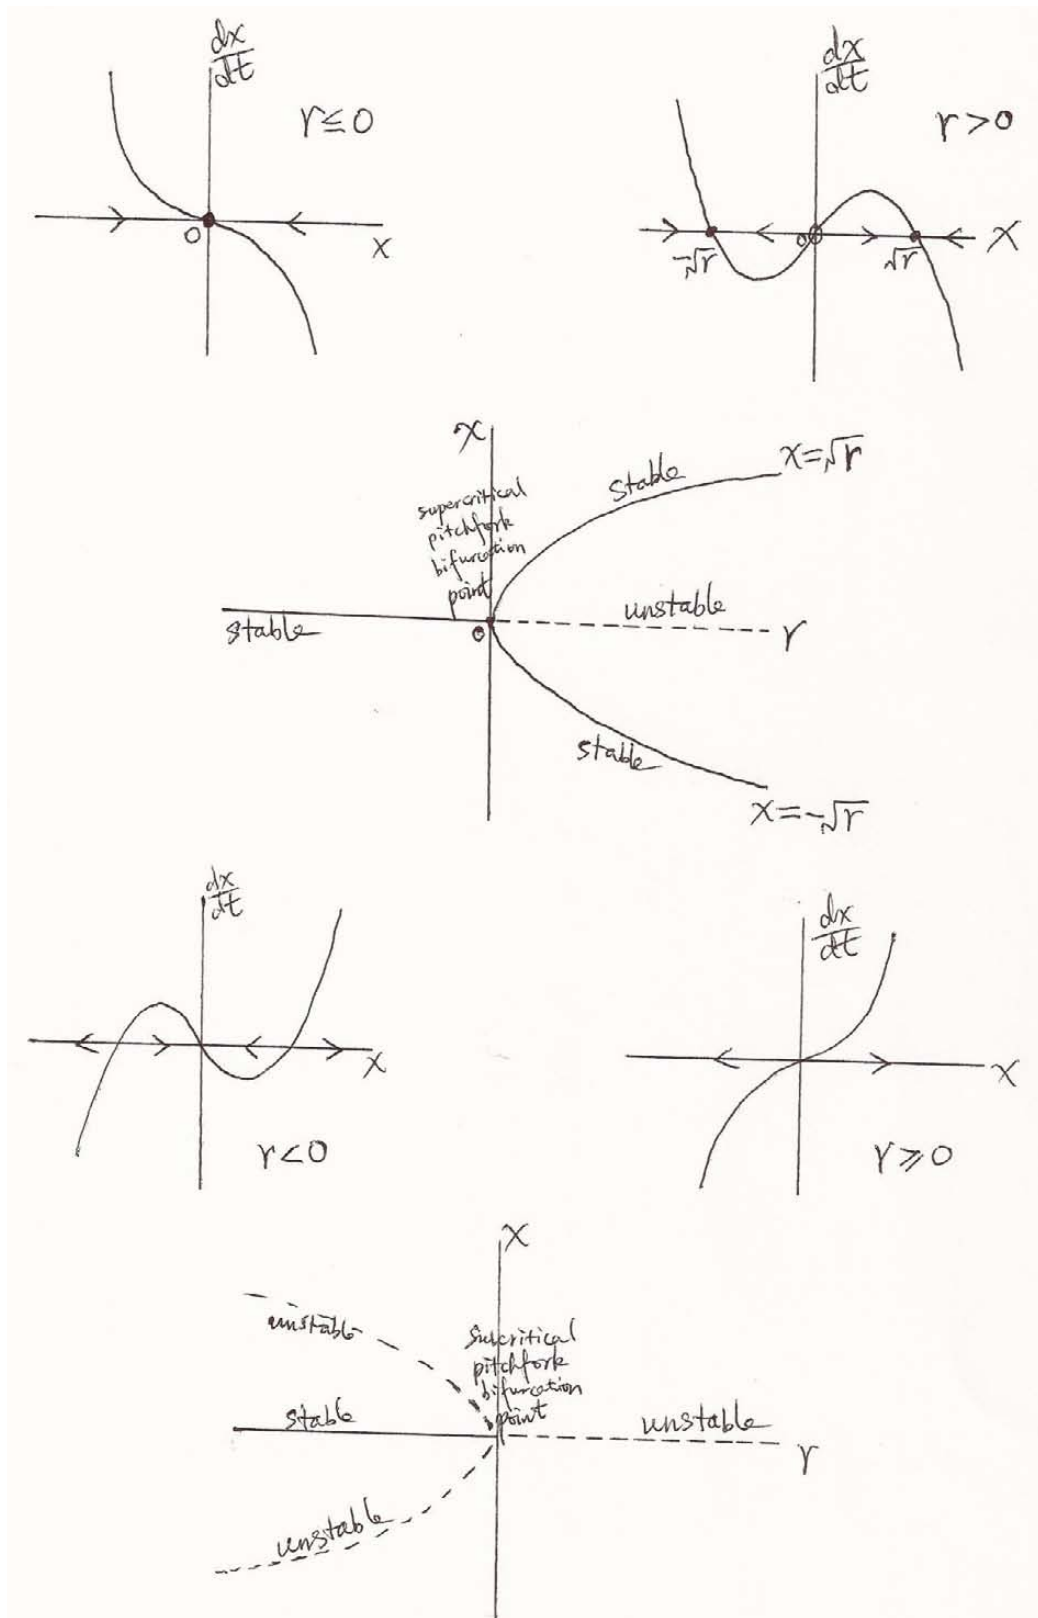 dx/dt
r≦0
0
x
dx/dt
r>0
-√r
0
√r
x
x
x=√r
stable
supercritical
pitchfork
bifurcation
point
unstable
stable
0
r
stable
x=-√r
dx/dt
x
r<0
dx/dt
x
r⩾0
x
unstable
Subcritical
pitchfork
bifurcation
point
stable
unstable
r
unstable